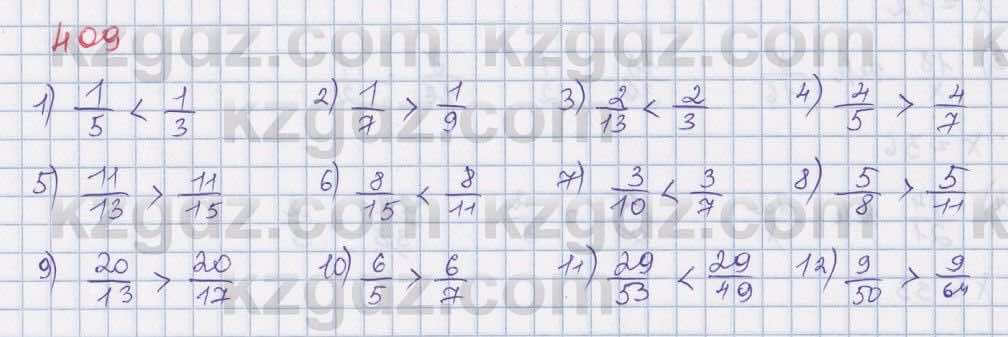 409
1) 1/5 < 1/3 2) 1/7 > 1/9 3) 2/13 < 2/3 4) 4/5 > 4/7
5) 11/13 > 11/15 6) 8/15 < 8/11 7) 3/10 < 3/7 8) 5/8 > 5/11
9) 20/13 > 20/17 10) 6/5 > 6/7 11) 29/53 < 29/49 12) 9/50 > 9/64
kzgdz.com kzgdz.com
kzgdz.com
kzgdz.com kzgdz.com
kzgdz.com